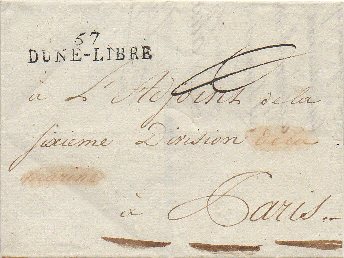 57
DUNE-LIBRE
6
à L'Adjoint de la
sixieme Division de la
marine
à Paris